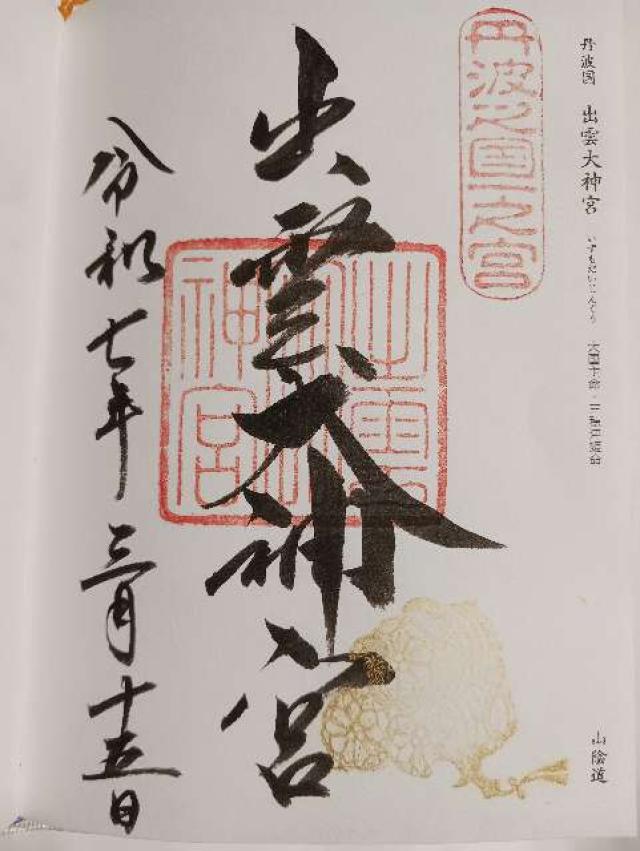 丹波国 出雲大神宮 いずもだいじんぐう 大国主命・三穂津姫命
山陰道
丹波之国一之宮
出雲大神宮
令和七年三月十五日